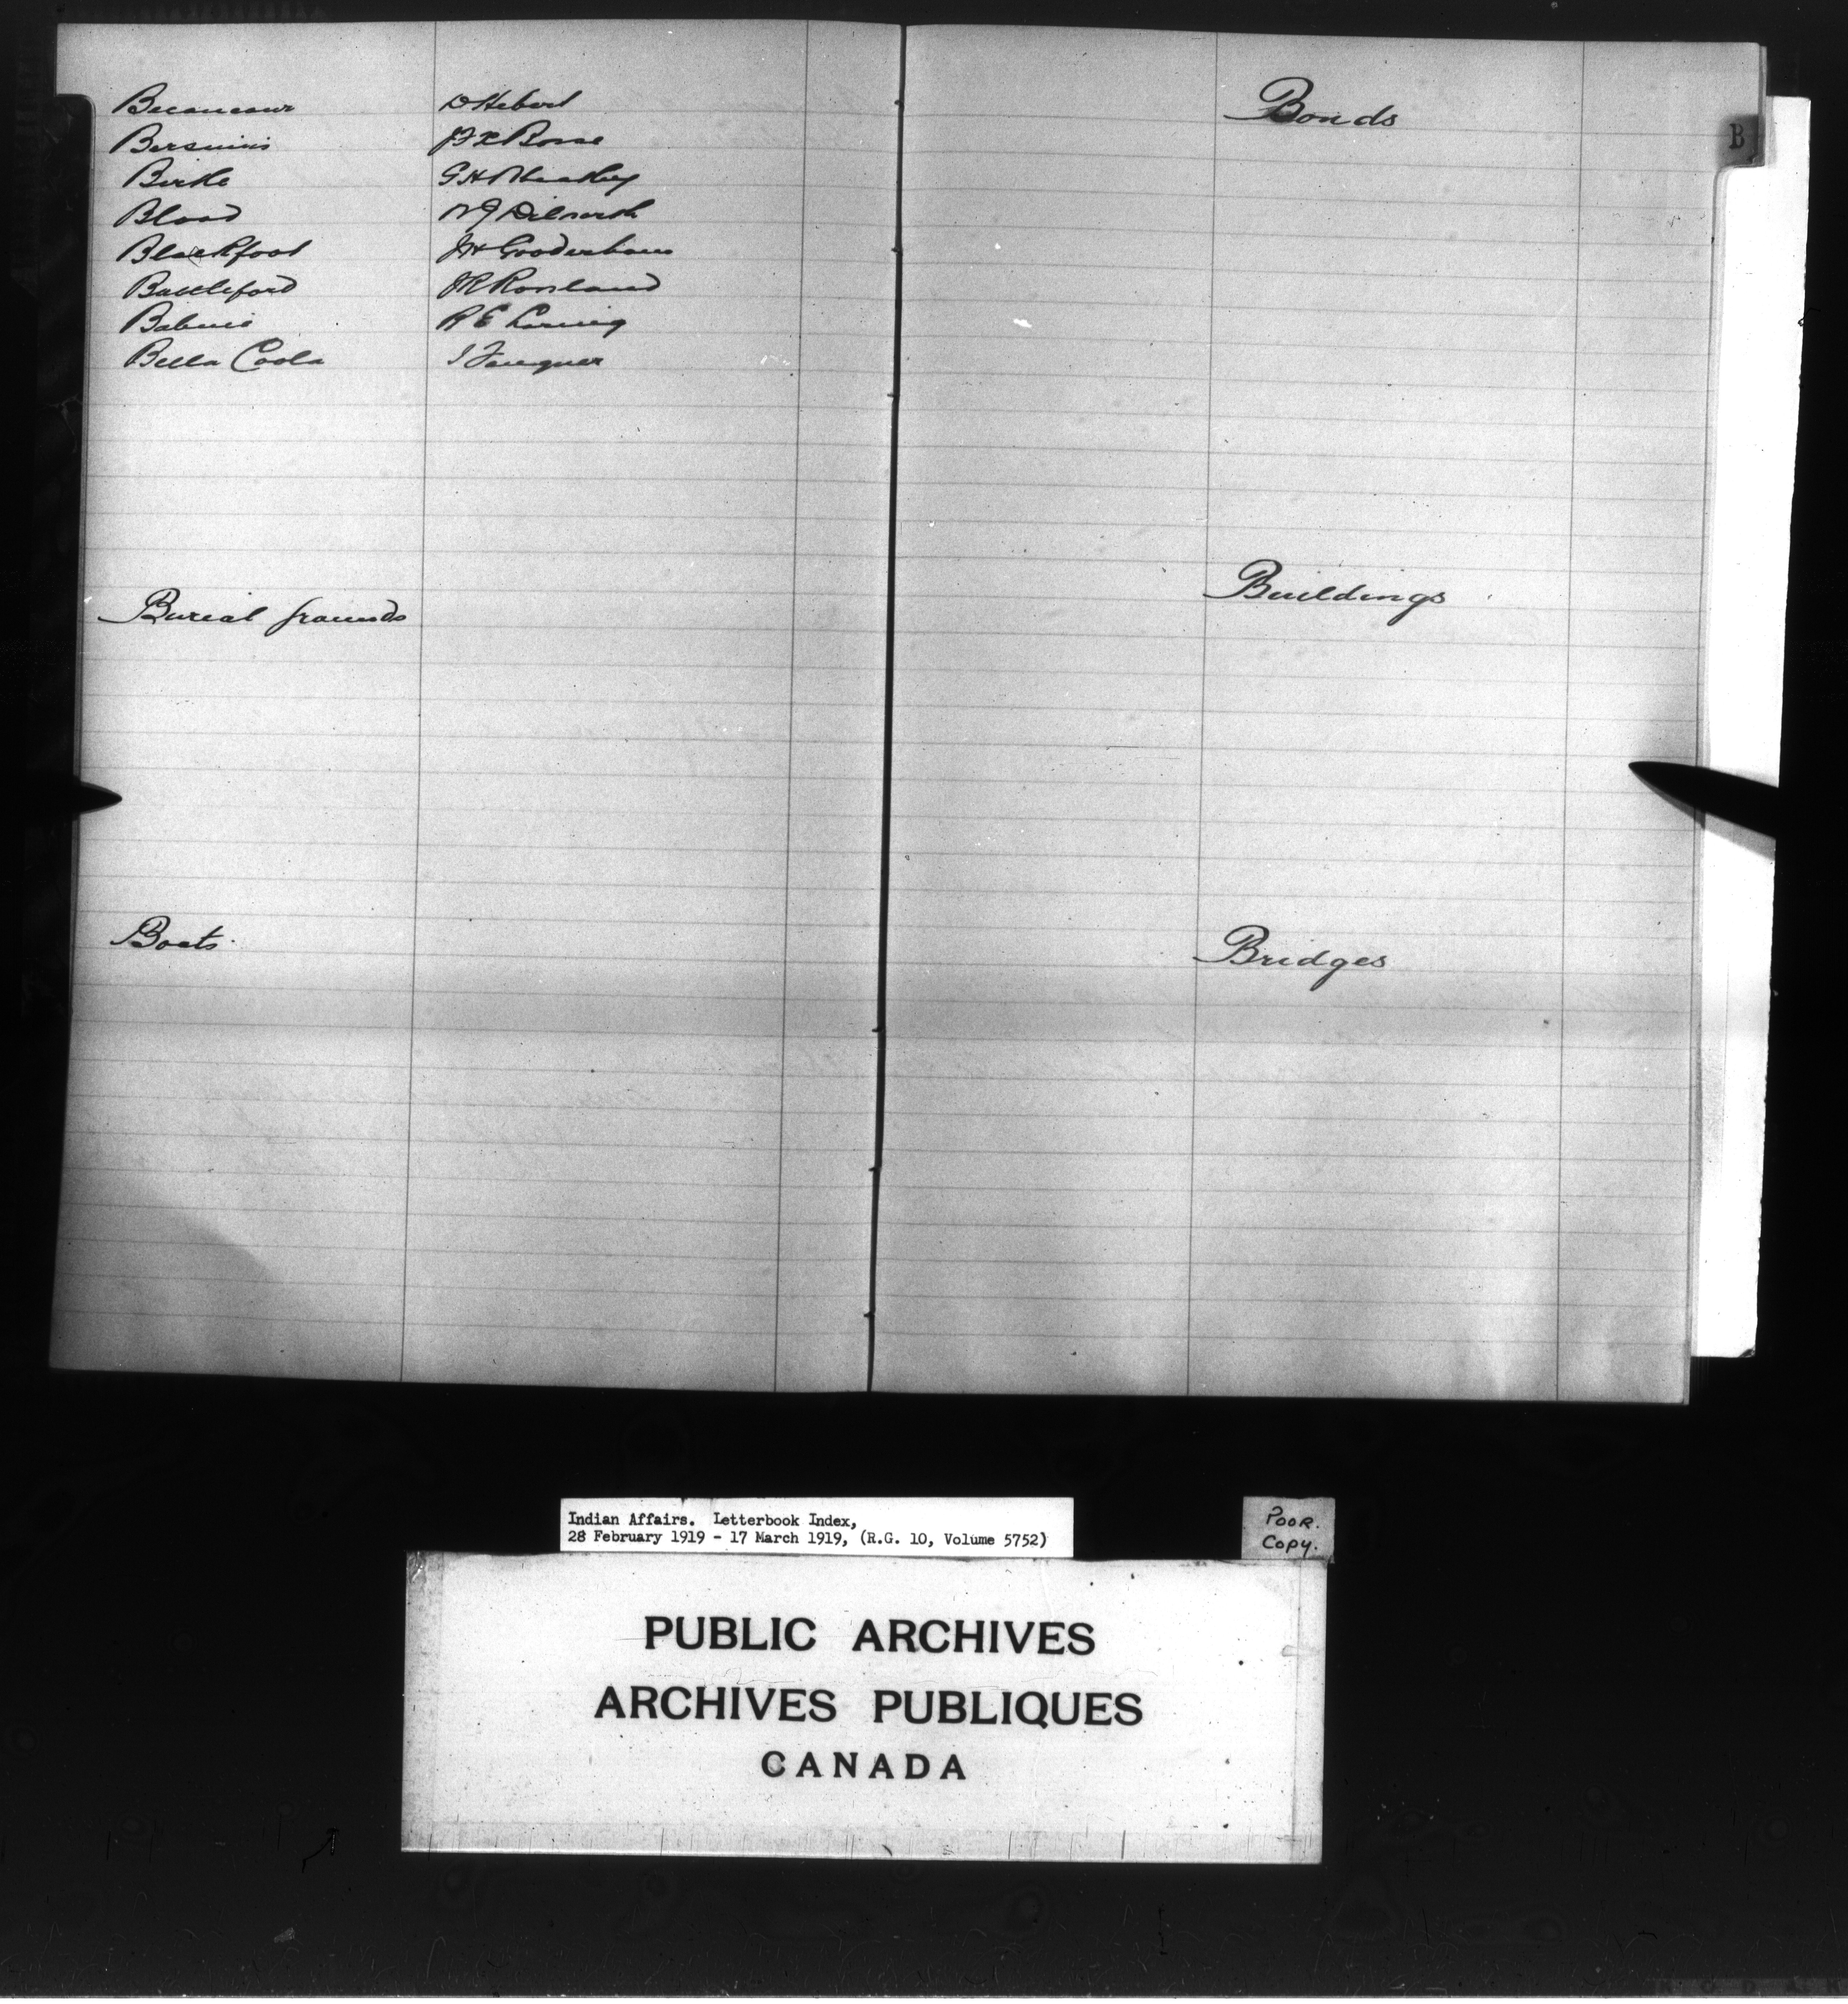 Becancour D Hebert
Bersimis J F X Bosse
Birtle G H Wheatley
Blood W J Dilworth
Blackfoot J H Gooderham
Battleford J R Rowland
Babine R E Loring
Bella Coola I Fougner
Burial Grounds
Boats.
Bonds
B
Buildings
Bridges
Indian Affairs. Letterbook Index,
28 February 1919 - 17 March 1919, (R.G. 10, Volume 5752)
POOR.
COPY.
PUBLIC ARCHIVES
ARCHIVES PUBLIQUES
CANADA